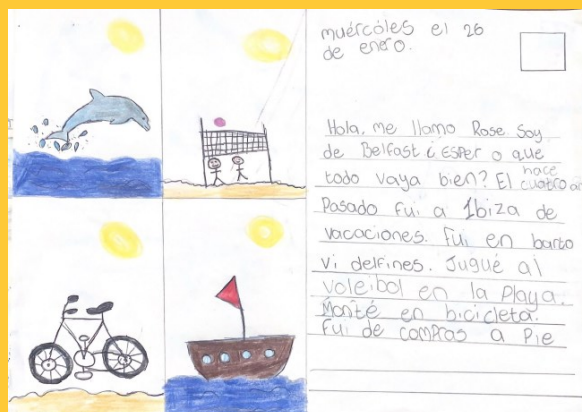 muércoles el 26
de enero.
Hola, me llamo Rose. Soy
de Belfast ¿ESPER o que
todo vaya bien? El hace cuatro
Pasado fui a Ibiza de
vacaciones. Fui en barto
vi delfines. Jugué al
voleibol en la playa.
Monté en bicicleta.
Fui de compras a Pie